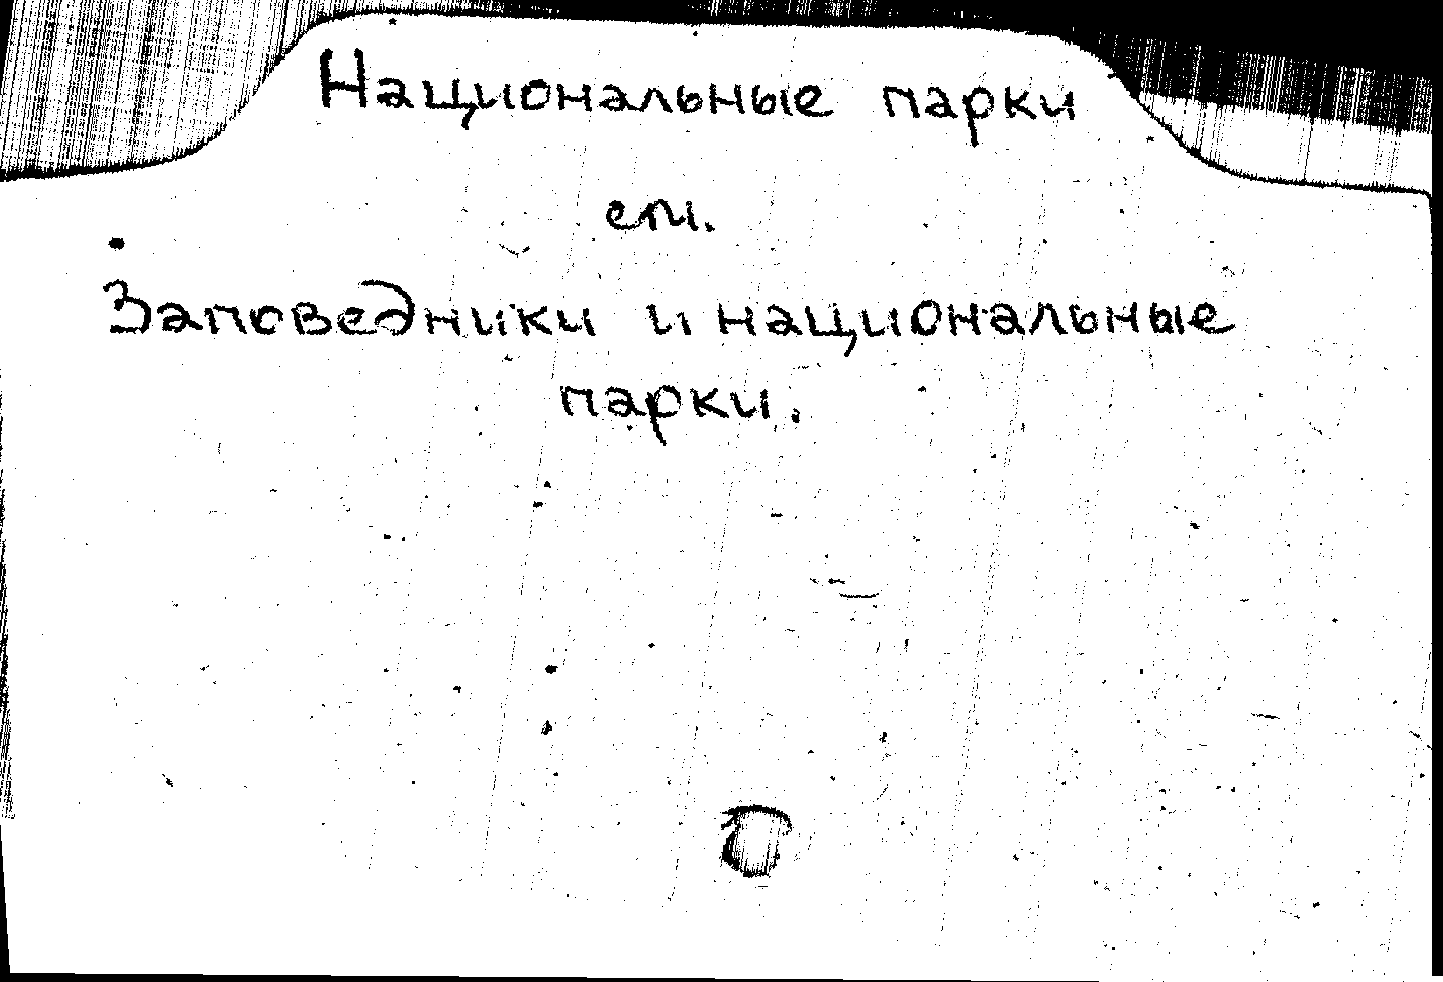 Национальные парки
см.
Заповедники и национальные
парки.